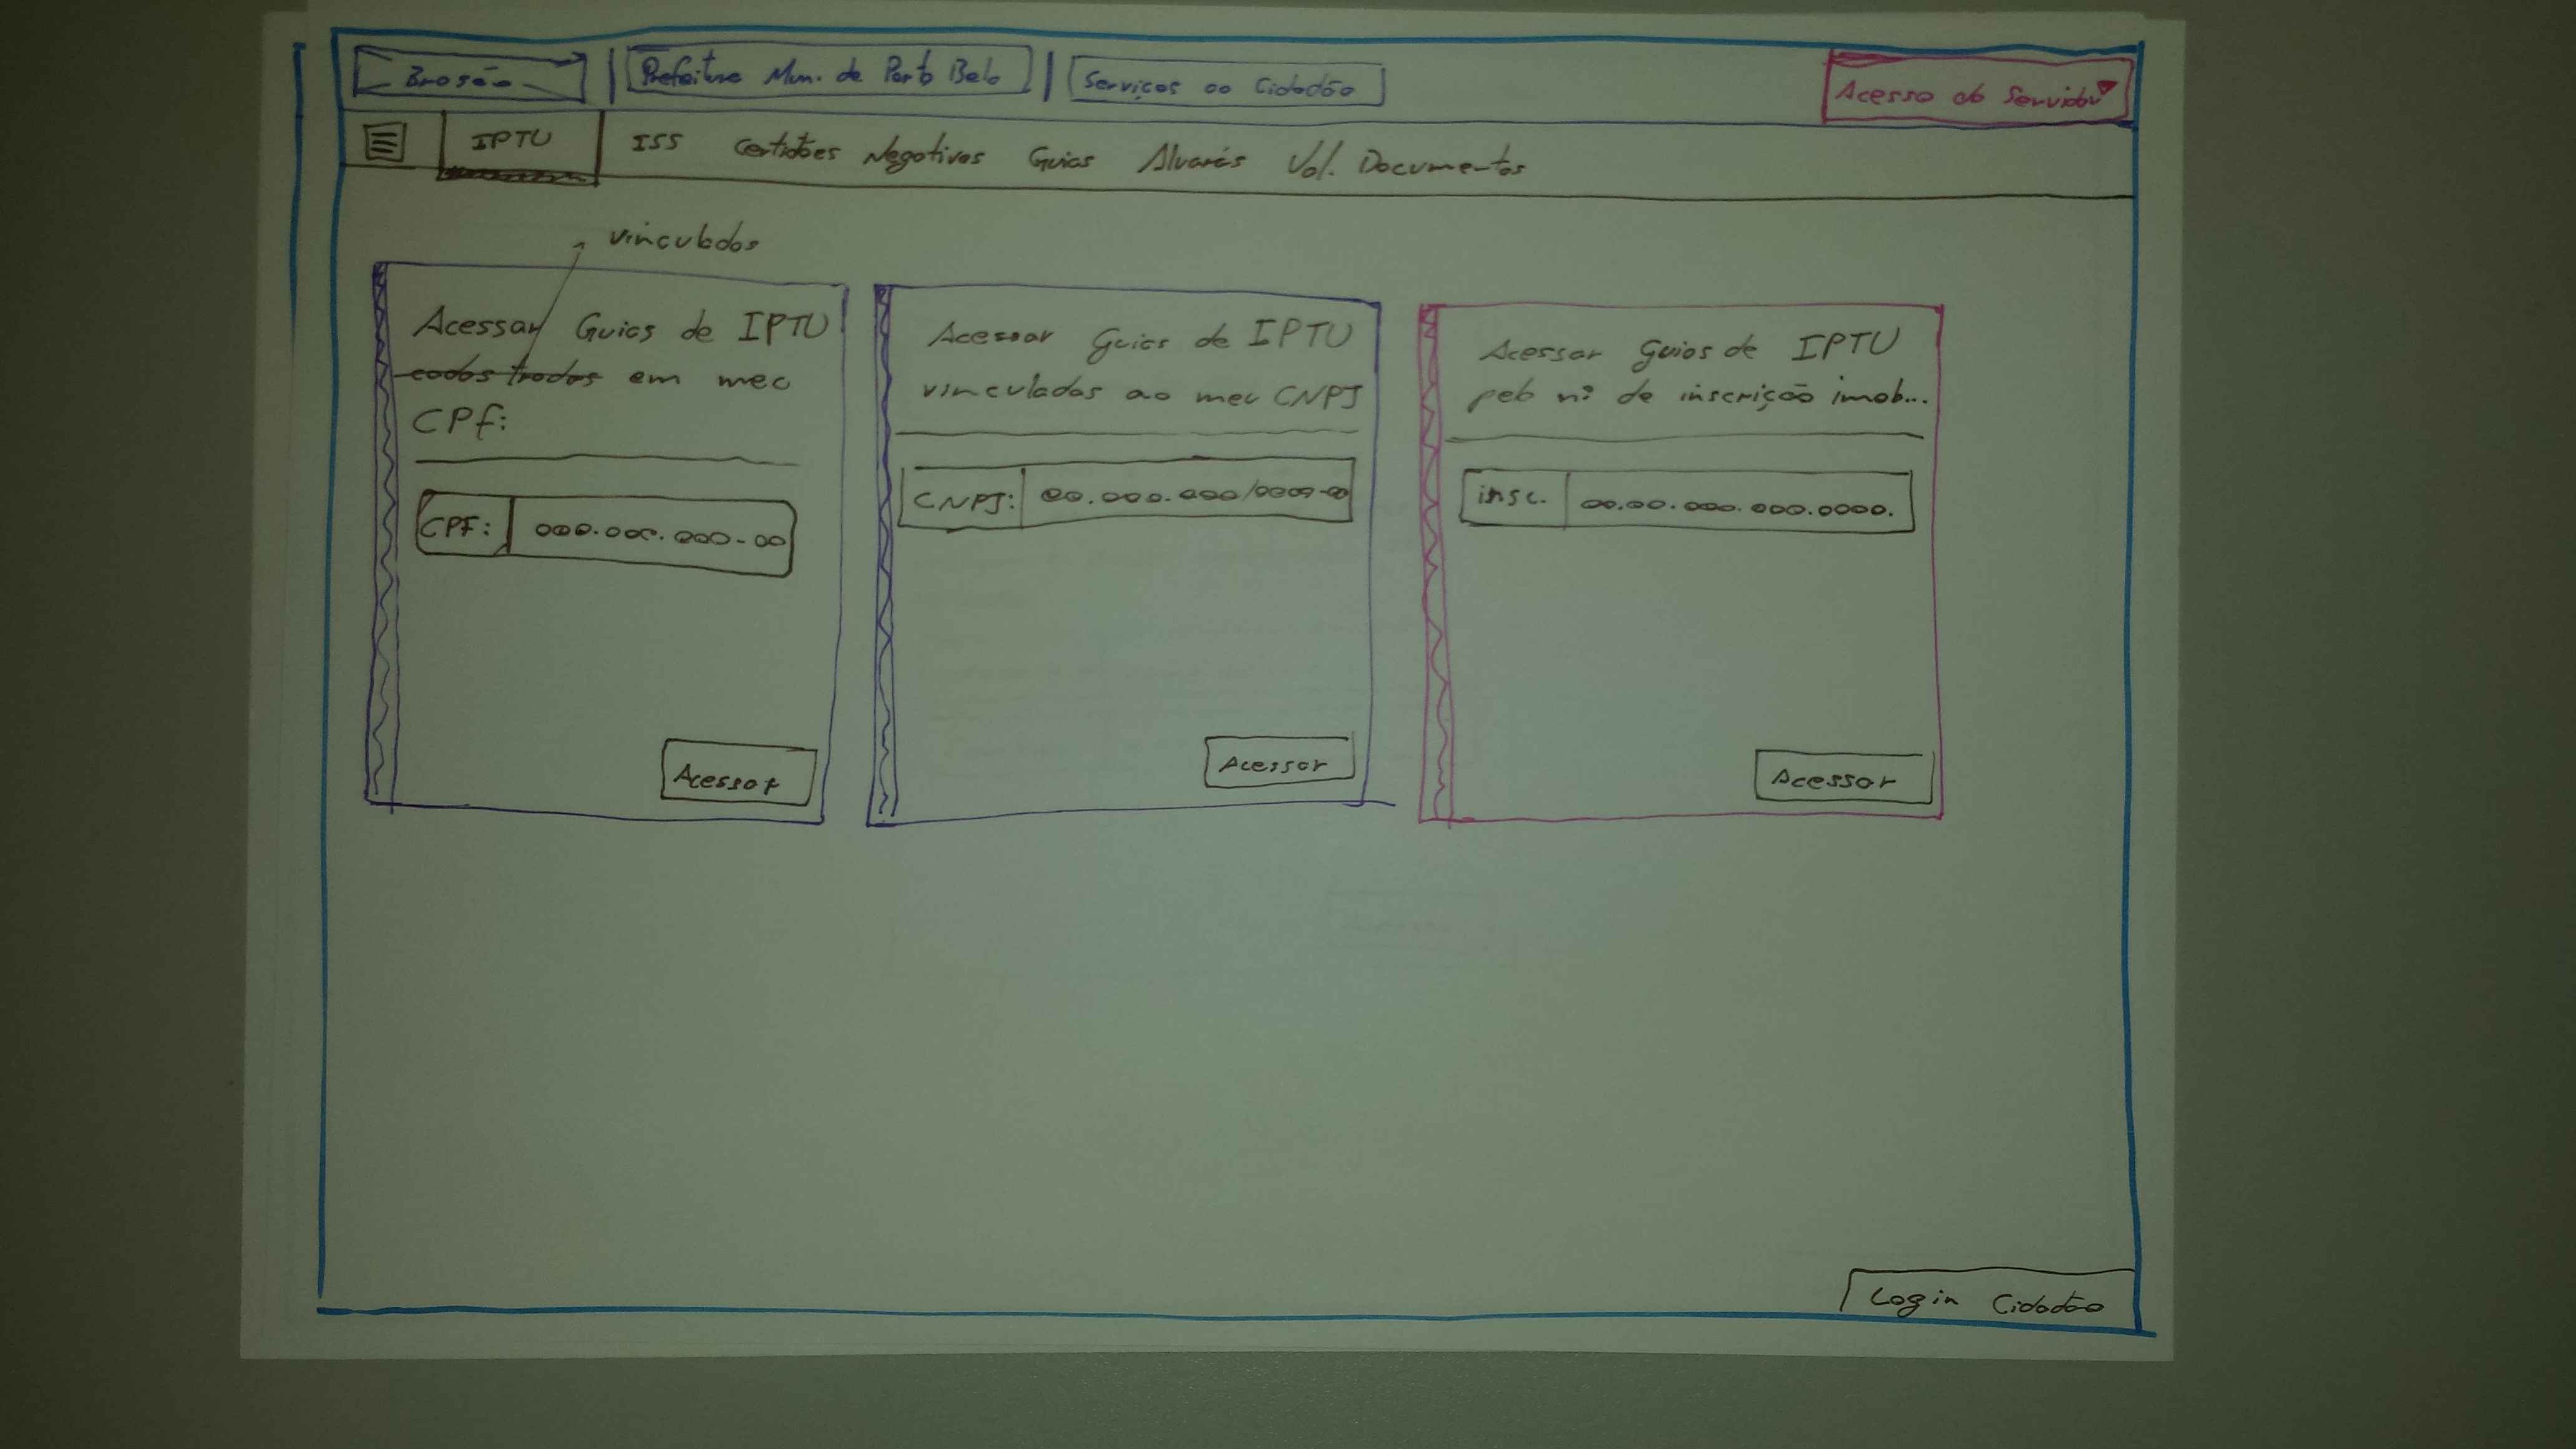 Brasão
Prefeitura Mun. de Porto Belo
Serviços ao Cidadão
Acesso do Servidor
IPTU ISS Certidões Negativas Guias Alvarás Val. Documentos
vinculados
Acessar Guias de IPTU
cadastradas em meu
CPF:
CPF: 000.000.000-00
Acessar
Acessar Guias de IPTU
vinculadas ao meu CNPJ
CNPJ: 00.000.000/0000-00
Acessar
Acessar Guias de IPTU
pelo nº de inscrição imob...
insc. 00.00.000.000.0000.
Acessar
Login Cidadão